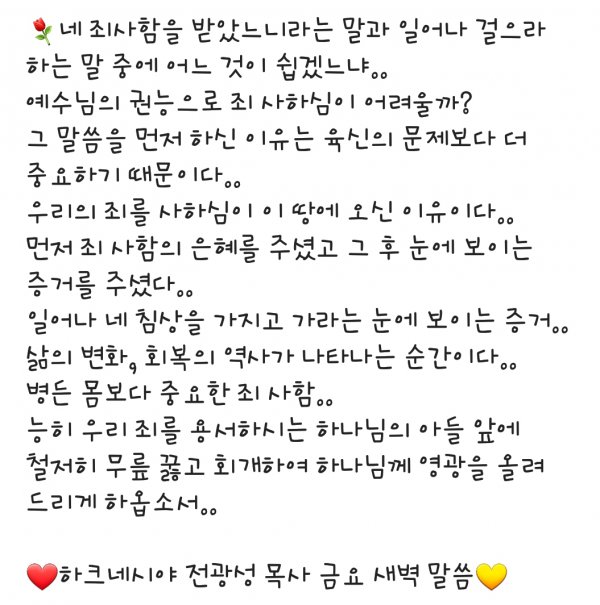 🌹네 죄사함을 받았느니라는 말과 일어나 걸으라
하는 말 중에 어느 것이 쉽겠느냐..
예수님의 권능으로 죄 사하심이 어려울까?
그 말씀을 먼저 하신 이유는 육신의 문제보다 더
중요하기 때문이다..
우리의 죄를 사하심이 이 땅에 오신 이유이다..
먼저 죄 사함의 은혜를 주셨고 그 후 눈에 보이는
증거를 주셨다..
일어나 네 침상을 가지고 가라는 눈에 보이는 증거..
삶의 변화, 회복의 역사가 나타나는 순간이다..
병든 몸보다 중요한 죄 사함..
능히 우리 죄를 용서하시는 하나님의 아들 앞에
철저히 무릎 꿇고 회개하여 하나님께 영광을 올려
드리게 하옵소서..
❤️하크네시야 전광성 목사 금요 새벽 말씀💛